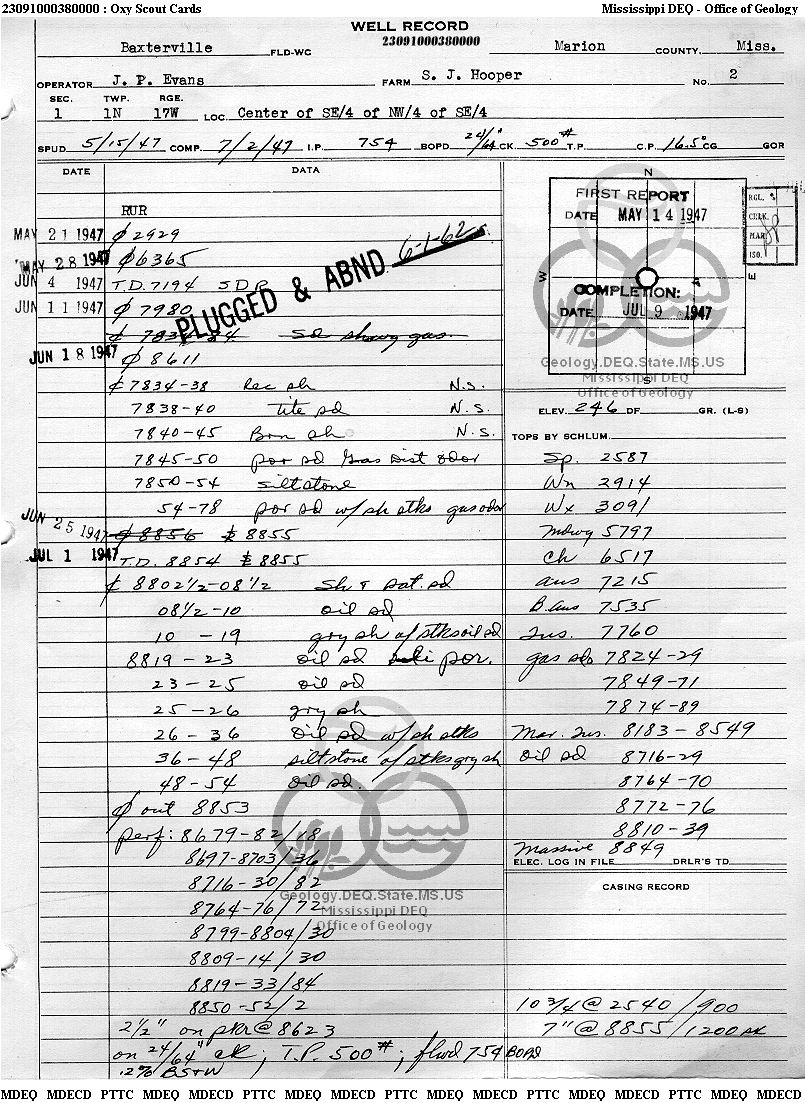 23091000380000 : Oxy Scout Cards Mississippi DEQ - Office of Geology
WELL RECORD
Baxterville FLD-WC 23091000380000 Marion COUNTY, Miss.
OPERATOR J. P. Evans FARM S. J. Hooper No. 2
SEC. TWP. RGE.
1 1N 17W LOC. Center of SE/4 of NW/4 of SE/4
SPUD 5/15/47 COMP. 7/2/47 I.P. 754 BOPD 24/64" CK. 500# T.P. C.P. 16.5° CG GOR
DATE DATA
RUR
MAY 21 1947 ¢ 2929
MAY 28 1947 ¢ 6365
JUN 4 1947 T.D. 7194 SDP
JUN 11 1947 ¢ 7980
PLUGGED & ABND 6-1-62
Sd showg gas.
JUN 18 1947 ¢ 8611
¢ 7834-38 Rec sh N.S.
7838-40 tite sd N.S.
7840-45 Brn sh N.S.
7845-50 por sd Gas Dist odor
7850-54 siltstone
54-78 por sd w/sh stks gas odor
JUN 25 1947 ¢ 8856 £ 8855
JUL 1 1947 T.D. 8854 £ 8855
¢ 8802½-08½ Sh & sat. sd
08½-10 oil sd
10-19 gry sh w/stks oil sd
8819-23 oil sd por.
23-25 oil sd
25-26 gry sh
26-36 oil sd w/sh stks
36-48 siltstone w/stks gry sh
48-54 oil sd.
¢ out 8853
perf: 8679-82/18
8697-8703/36
8716-30/82
8764-76/72
8799-8804/30
8809-14/30
8819-33/84
8850-52/2
2½" on pkr @ 8623
on 24/64" ck; T.P. 500#; flwd 754 BOPD
.12% BS+W
N
FIRST REPORT
DATE MAY 14 1947
W E
COMPLETION:
DATE JUL 9 1947
S
RGL.
CHLK.
MAR.
ISO.
Geology.DEQ.State.MS.US
Mississippi DEQ
Office of Geology
ELEV. 246 DF GR. (L-S)
TOPS BY SCHLUM.
Sp. 2587
Wn 2914
Wx 3091
Mdwy 5797
Ch 6517
Aus 7215
B.Aus 7535
Tus. 7760
gas sds 7824-29
7849-71
7874-89
Mar. Tus. 8183-8549
oil sd 8716-29
8764-70
8772-76
8810-39
Massive 8849
ELEC. LOG IN FILE DRLR'S TD
CASING RECORD
10 3/4 @ 2540/900
7" @ 8855/1200 sx
Geology.DEQ.State.MS.US
Mississippi DEQ
Office of Geology
MDEQ MDECD PTTC MDEQ MDECD PTTC MDEQ MDECD PTTC MDEQ MDECD PTTC MDEQ MDECD PTTC MDEQ MDECD